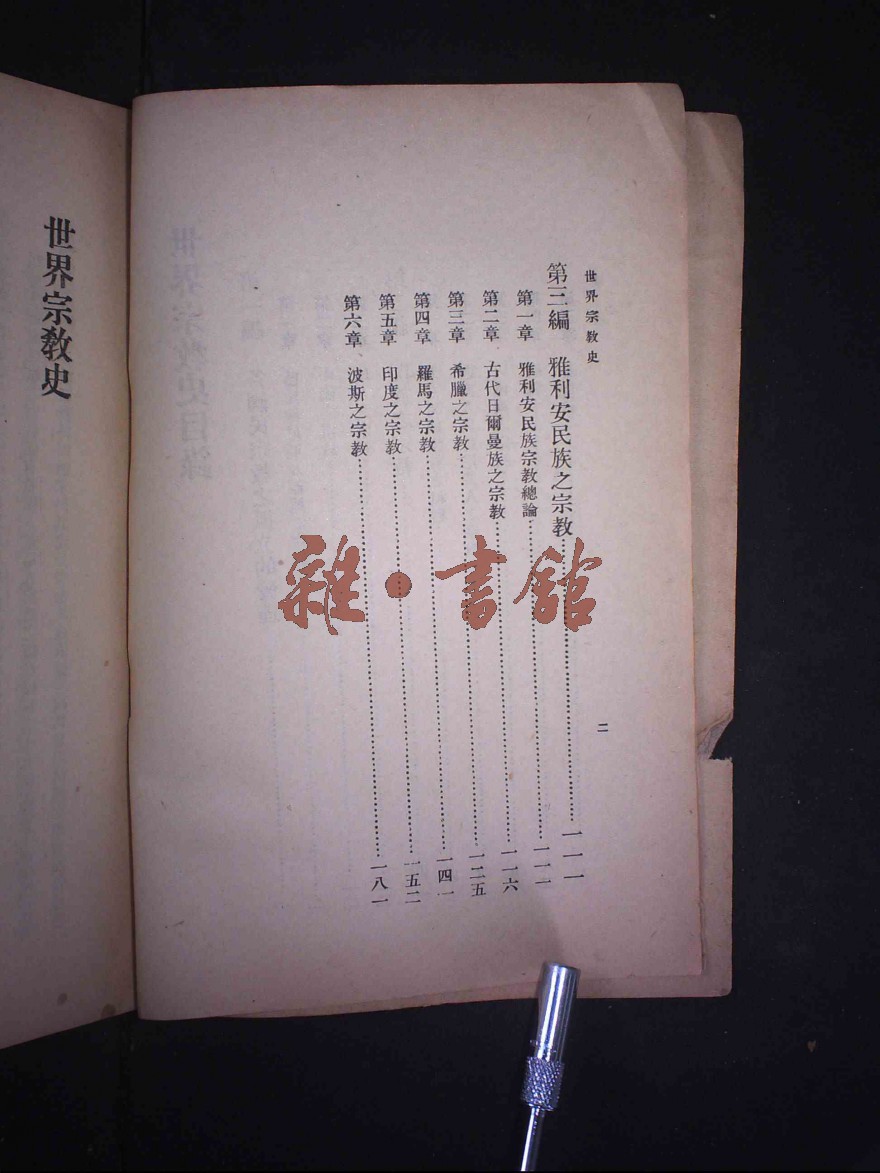 世界宗敎史
二
第三編　雅利安民族之宗敎……一一一
第一章　雅利安民族宗敎總論……一一一
第二章　古代日爾曼族之宗敎……一一六
第三章　希臘之宗敎……一二五
第四章　羅馬之宗敎……一四一
第五章　印度之宗敎……一五二
第六章　波斯之宗敎……一八一
世界宗敎史
雜·書館